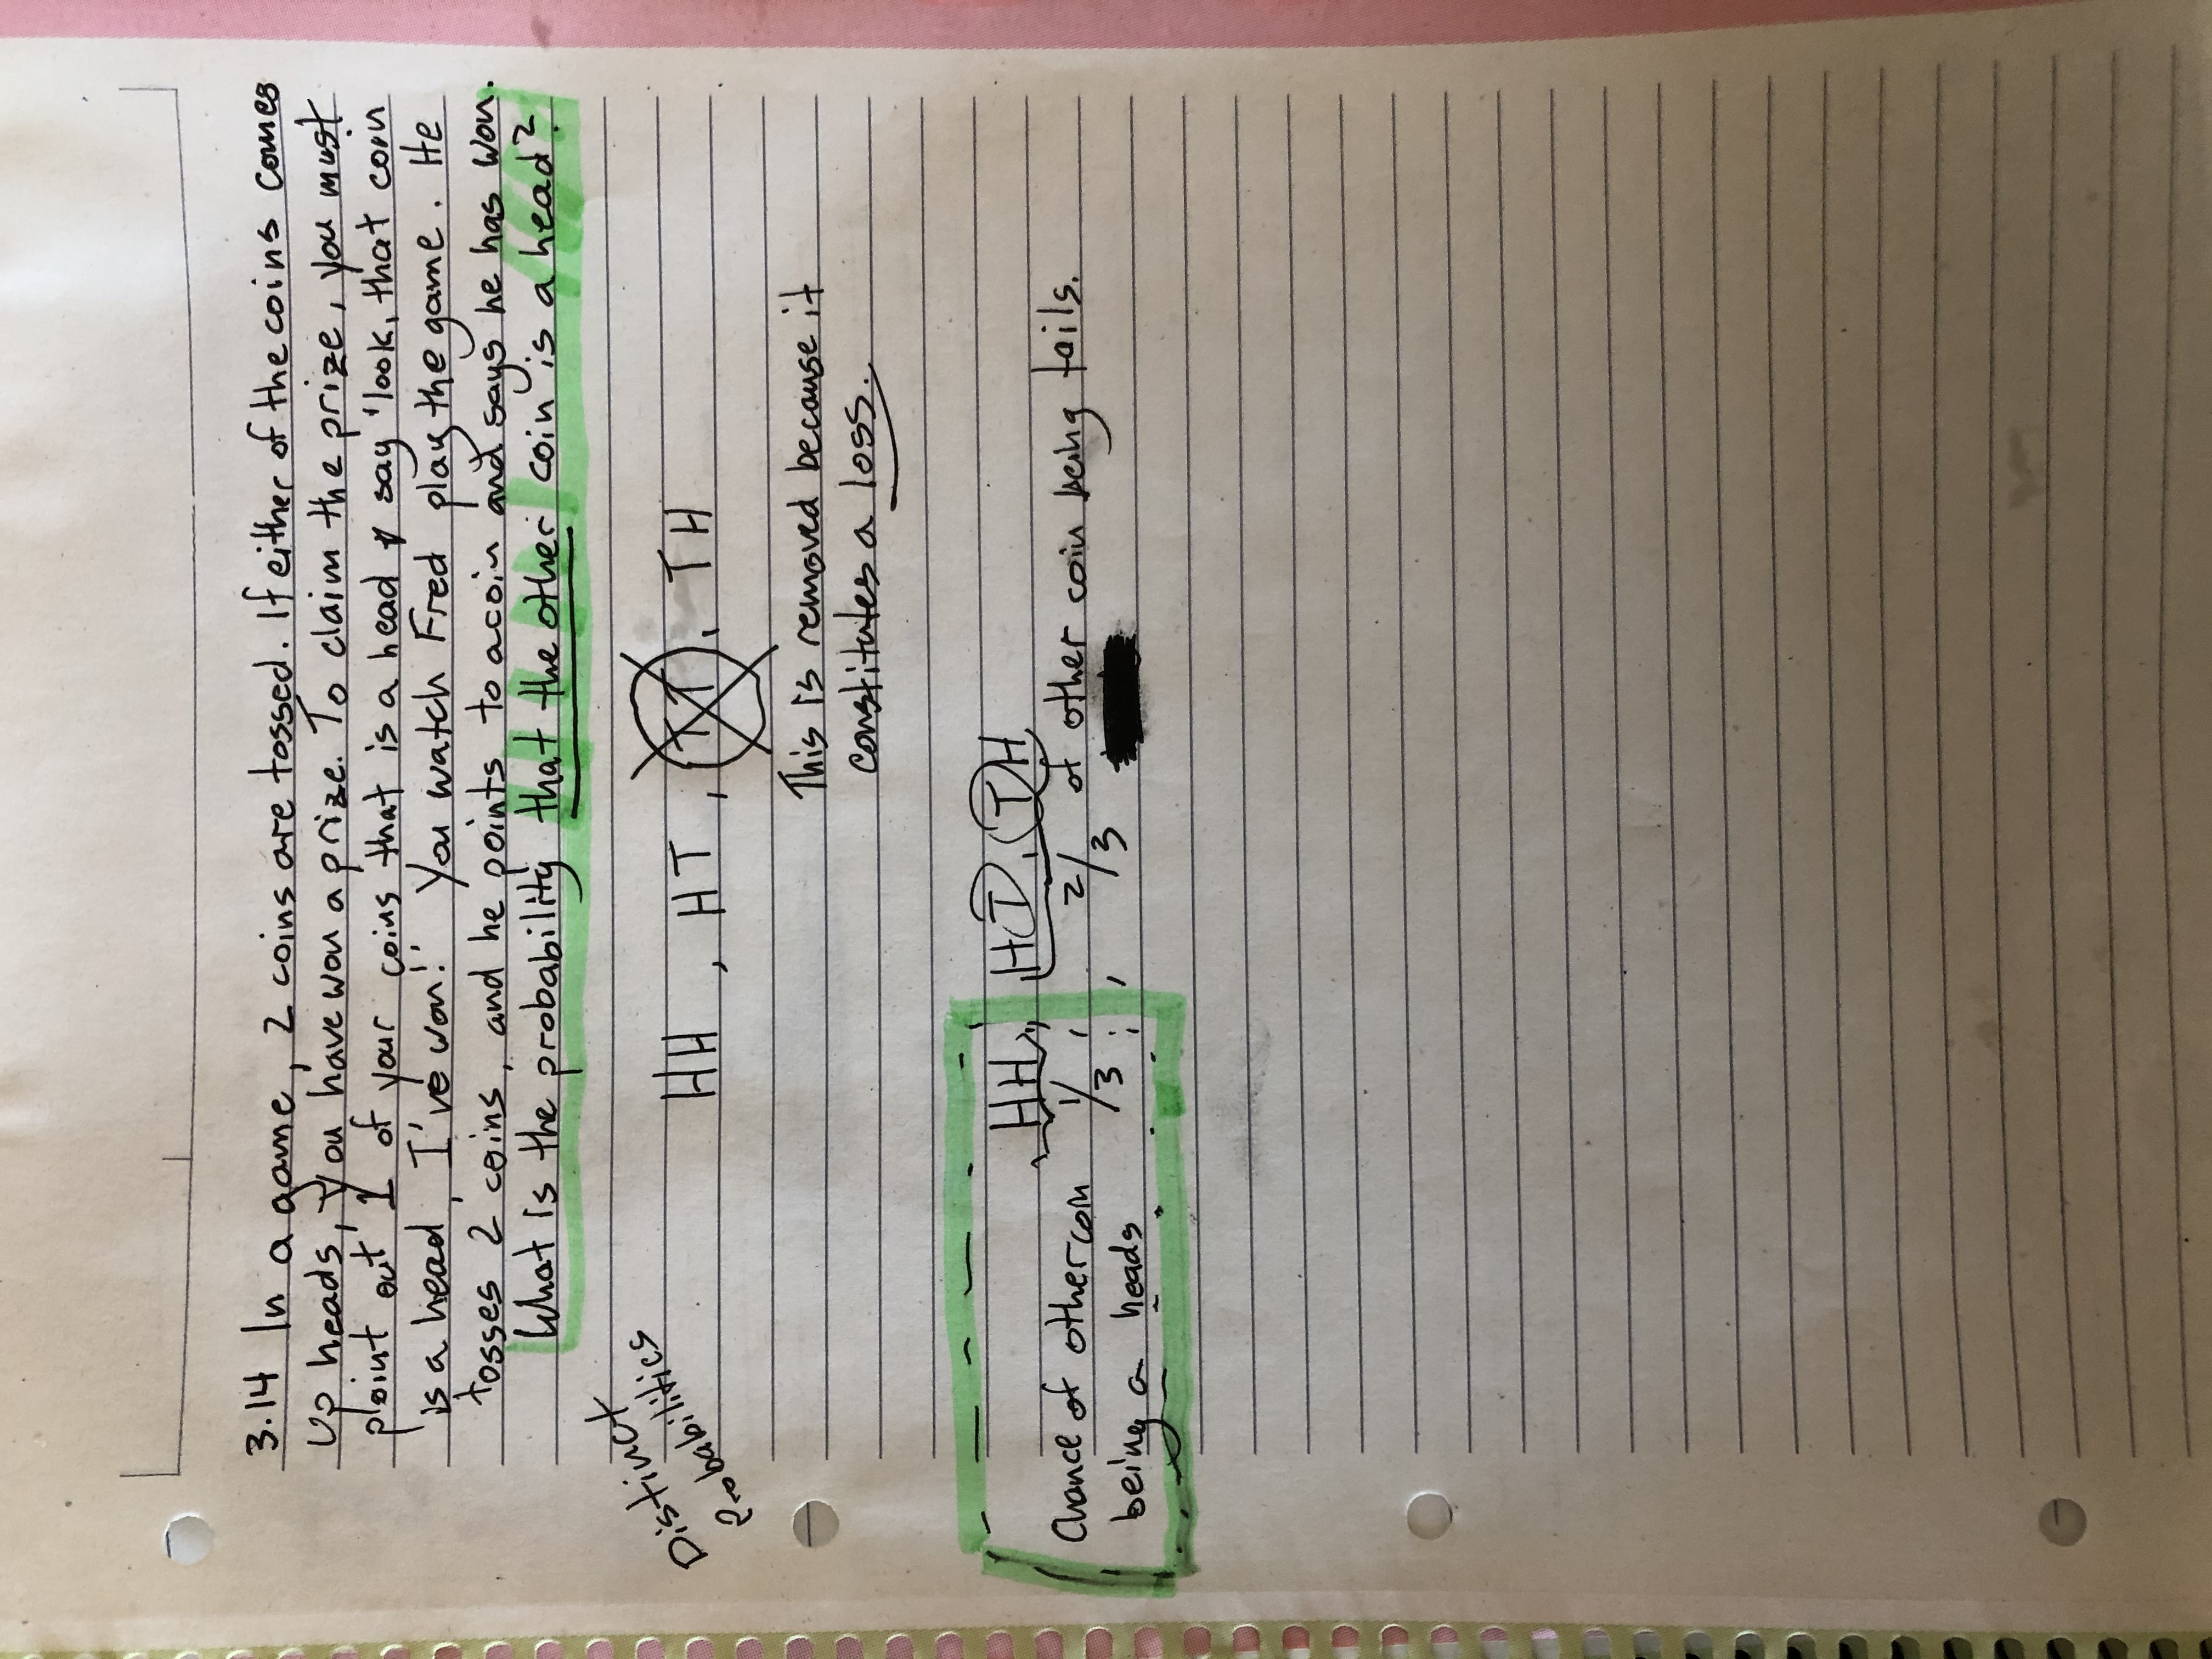 3.14 In a game, 2 coins are tossed. If either of the coins comes
up heads, you have won a prize. To claim the prize, you must
point out 1 of your coins that is a head & say "look, that coin
is a head, I've won!" You watch Fred play the game. He
tosses 2 coins, and he points to a coin and says he has won.
What is the probability that the other coin is a head?
Distinct
Probabilities
HH, HT, TT, TH
This is removed because it
constitutes a loss.
HH, HT, TH
Chance of other coin 1/3, 2/3 of other coin being tails.
being a heads